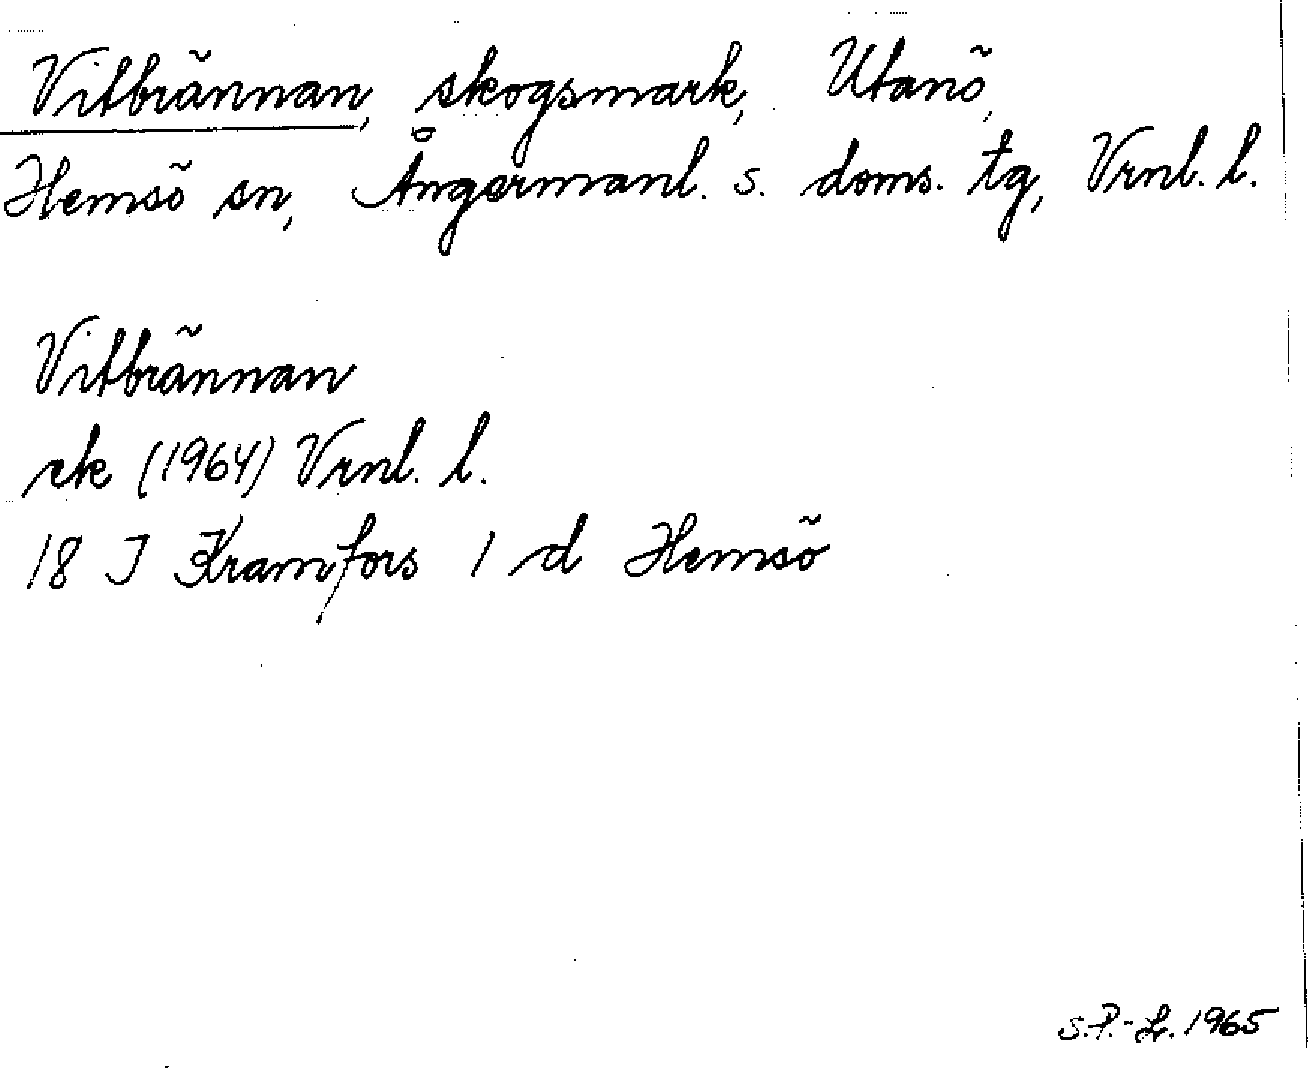 Vitbrännan, skogsmark, Utanö,
Hemsö sn, Ångermanl. s. doms. tg, Vrnl. l.
Vitbrännan
ek (1964) Vrnl. l.
18 I Kramfors 1 d Hemsö
S.P.-L. 1965